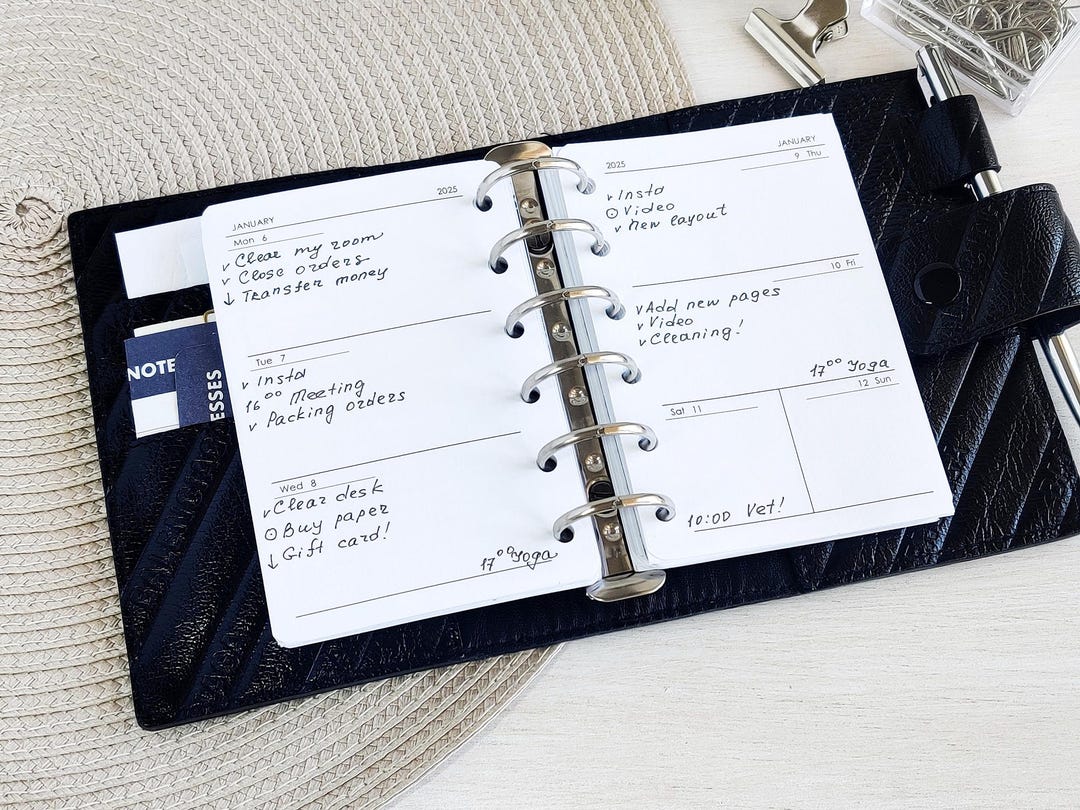 NOTE
ESSES
JANUARY 2025
Mon 6
v Clear my room
v Close orders
↓ Transfer money
Tue 7
v Insta
16⁰⁰ Meeting
v Packing orders
Wed 8
v Clear desk
⊙ Buy paper
↓ Gift card!
17⁰⁰ Yoga
2025 JANUARY
9 Thu
v Insta
⊙ Video
v New layout
10 Fri
v Add new pages
v Video
v Cleaning!
17⁰⁰ Yoga
Sat 11
10:00 Vet!
12 Sun